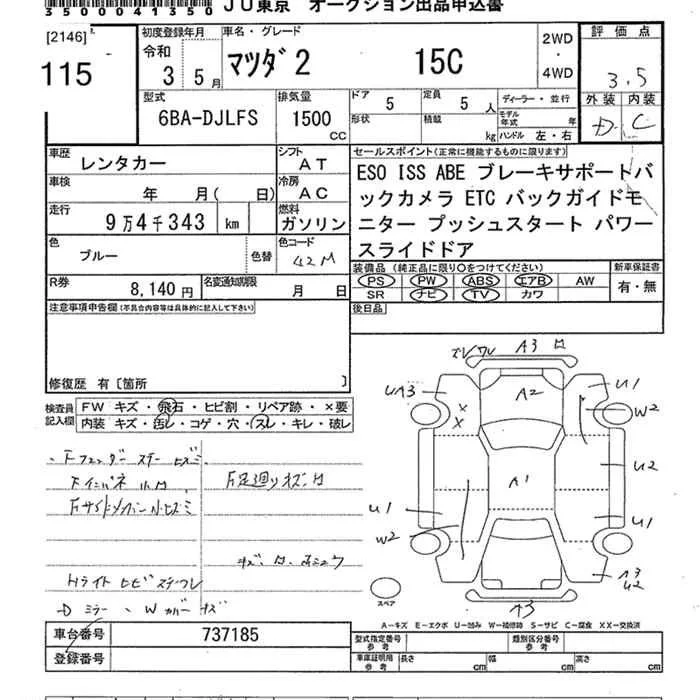 3500041350 JU東京 オークション出品申込書
[2146]
115
初度登録年月
令和
3 5 月
車名・グレード
マツダ2 15C
2WD
・
4WD
評価点
3.5
外装 内装
D C
型式
6BA-DJLFS
排気量
1500
CC
ドア
5
定員
5 人
形状
積載
kg
ディーラー・並行
モデル年式 年
ハンドル 左・右
車歴
レンタカー
シフト
AT
車検
年 月( 日)
冷房
AC
走行
9万4千343 km
燃料
ガソリン
色
ブルー
色替
色コード
42M
R券
8,140 円
名変通知期限
月 日
セールスポイント(正常に機能するものに限ります)
ESO ISS ABE ブレーキサポートバ
ックカメラ ETC バックガイドモ
ニター プッシュスタート パワー
スライドドア
装備品 (純正品に限り○をつけてください)
PS PW ABS エアB AW
SR ナビ TV カワ
新車保証書
有・無
後日品
注意事項申告欄(不具合内容等は具体的に記入して下さい)
修復歴 有〔箇所 〕
検査員
記入欄
FW キズ・飛石・ヒビ割・リペア跡・×要
内装 キズ・汚レ・コゲ・穴・スレ・キレ・破レ
Hライト ヒビ
Dミラー、Wカバー キズ
A3
UA3
A2
U1
W2
A1
U2
U1
U1
W2
A3
U2
A3
スペア
A−キズ E−エクボ U−凹み W−補修跡 S−サビ C−腐食 XX−交換済
車台番号
737185
登録番号
型式指定番号
参考
類別区分番号
参考
車庫証明用
参考
長さ cm
幅 cm
高さ cm